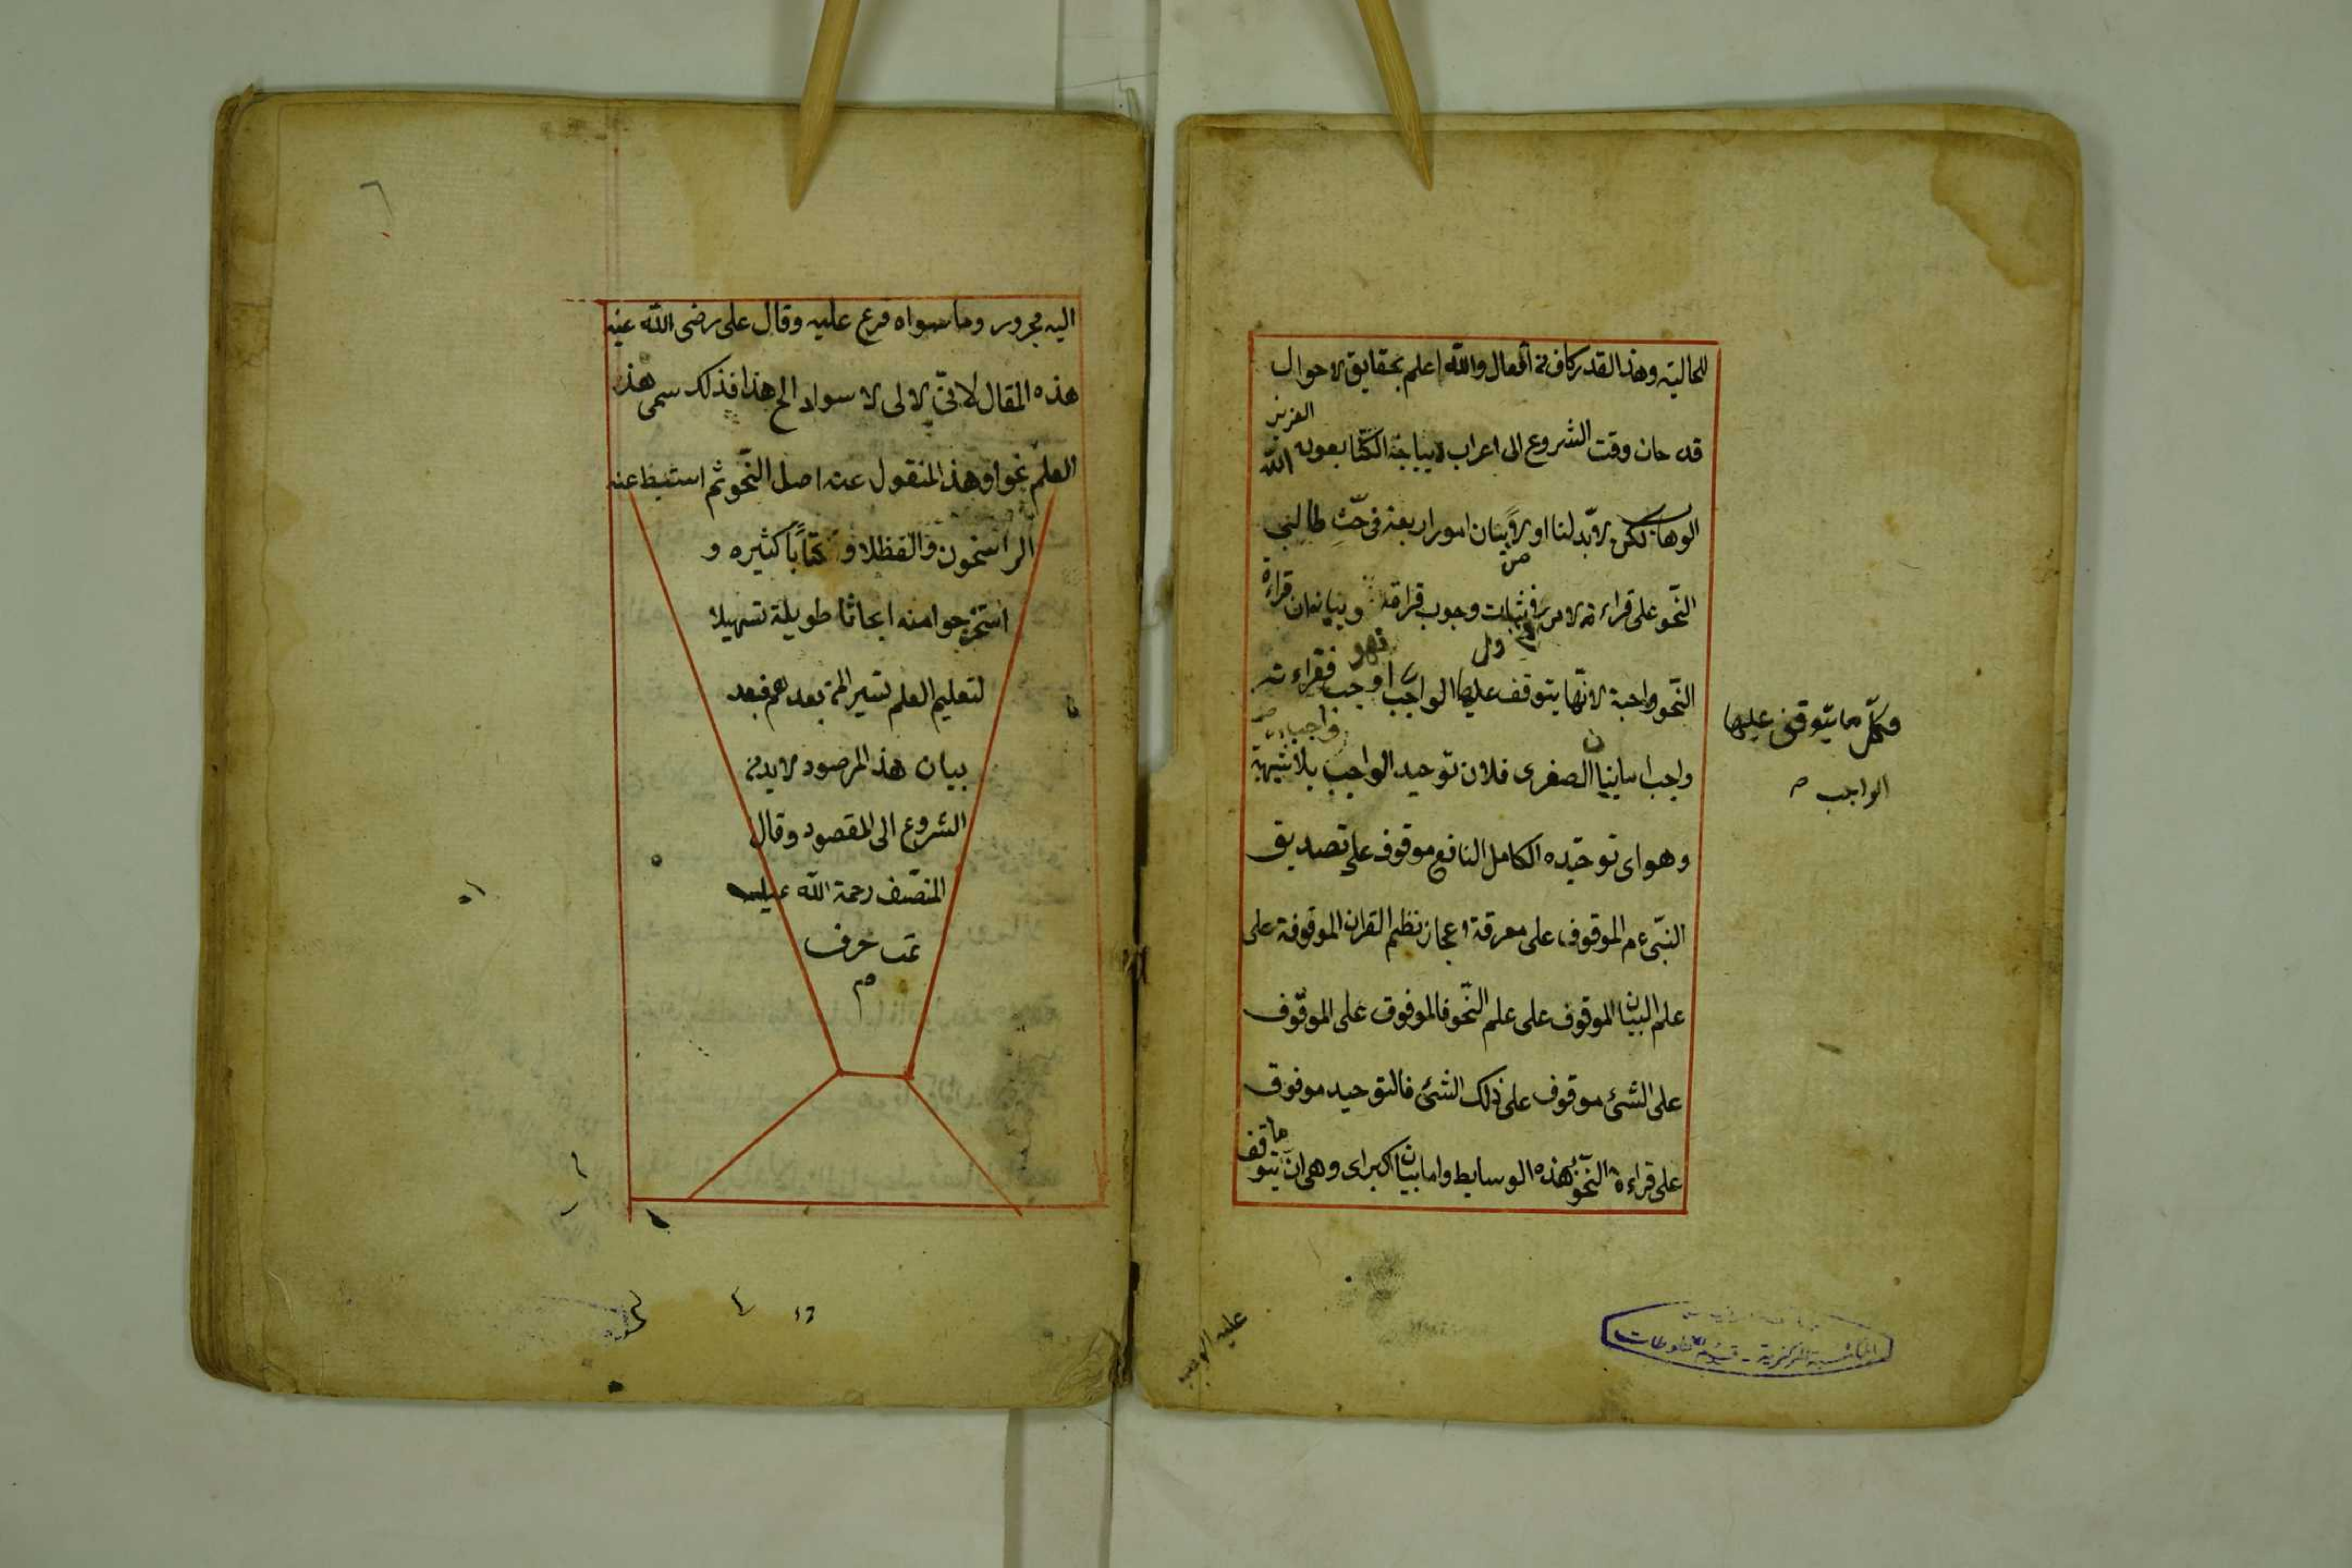 للحالية وهذا القدر كاف في افعال والله اعلم بحقايق الاحوال
قد حان وقت الشروع الى اعراب ديباجة الكتا بعون الله العزيز
الوهاب لكن لا بد لنا اولا بيان امور اربعة في حث طالبي
النحو على قراءة الامر في اثبات وجوب قرائة وبيانه ان قراءة
النحو واجبة لانها يتوقف عليها الواجب فقراءته
واجب اما بيان الصغرى فلان توحيد الواجب بلا شبهة
وهو اى توحيده الكامل النافع موقوف على تصديق
النبي ءم الموقوف على معرفة اعجاز نظم القران الموقوفة على
علم البيان الموقوف على علم النحو فالموقوف على الموقوف
على الشئ موقوف على ذلك الشئ فالتوحيد موقوف
على قراءة النحو بهذه الوسايط واما بيان اكبراى وهى ان ما يتوقف
وكل ما يتوقف عليها
الواجب
عليه الواجب
اليه مجرور وما سواه فرع عليه وقال على رضى الله عنه
هذه المقال لا الى لا سواد الخ هذا فذلك سمى هذ
العلم نحوا وهذ المنقول عنه اصل النحو ثم استنبط عنه
الراسخون كتابا كثيره و
استخرجوا منه ابحاثا طويلة تسهيلا
لتعليم العلم بعدهم فبعد
بيان هذ المرصود لابد في
الشروع الى المقصود وقال
المنصف رحمة الله عليه
تمت حرف
م
المكتبة المركزية - قسم المخطوطات